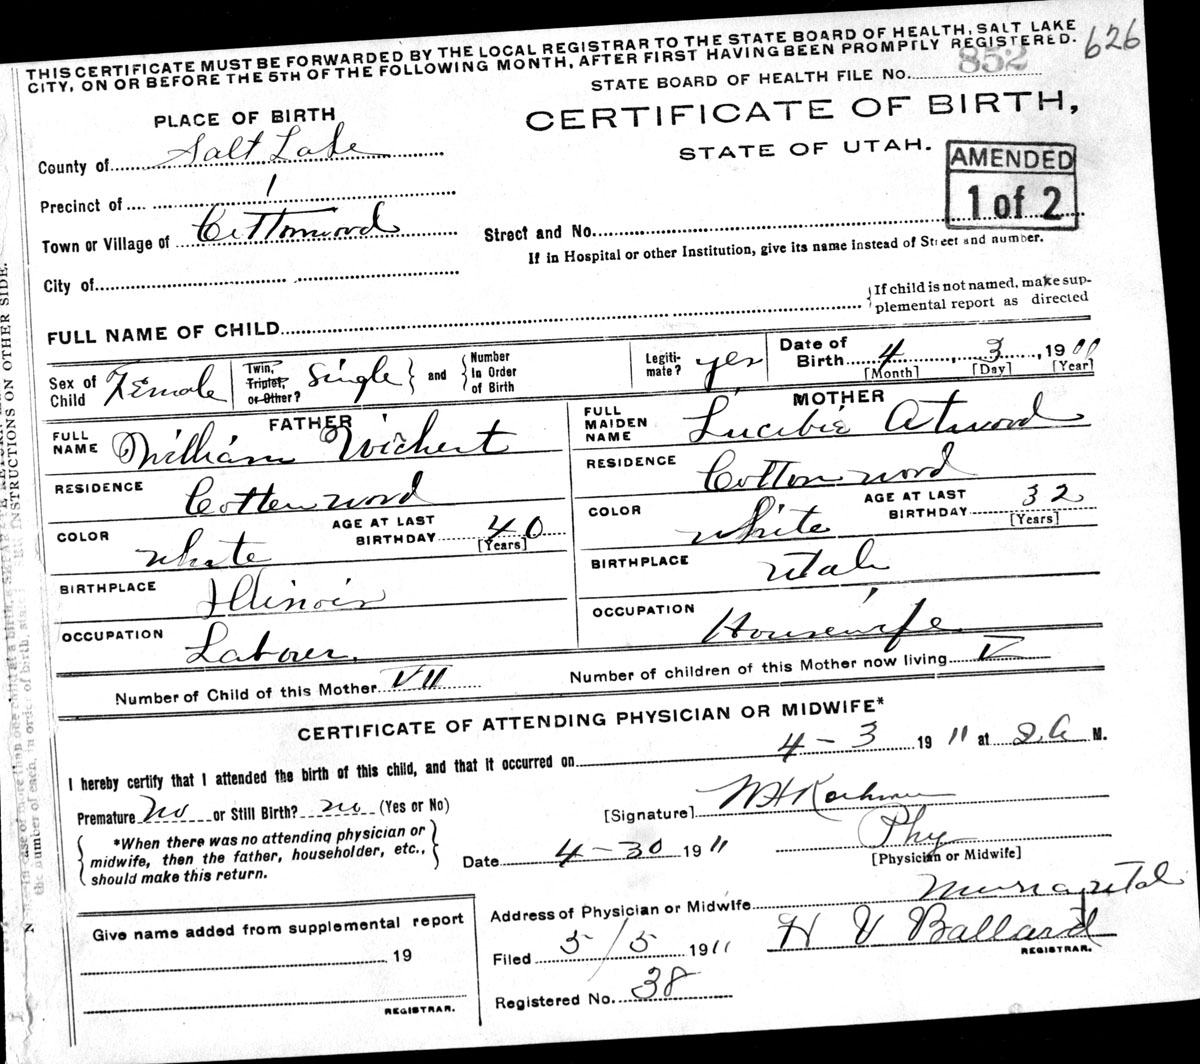 THIS CERTIFICATE MUST BE FORWARDED BY THE LOCAL REGISTRAR TO THE STATE BOARD OF HEALTH, SALT LAKE
CITY, ON OR BEFORE THE 5TH OF THE FOLLOWING MONTH, AFTER FIRST HAVING BEEN PROMPTLY REGISTERED.
626
STATE BOARD OF HEALTH FILE No. 852
PLACE OF BIRTH
CERTIFICATE OF BIRTH,
STATE OF UTAH.
AMENDED
1 of 2
County of Salt Lake
Precinct of 1
Town or Village of Cottonwood
Street and No.
If in Hospital or other Institution, give its name instead of Street and number.
City of
FULL NAME OF CHILD
{If child is not named, make sup-
plemental report as directed
Sex of Child Female
Twin, Triplet, or Other? Single } and { Number In Order of Birth
Legiti-mate? yes
Date of Birth 4, 3, 1911
[Month] [Day] [Year]
FATHER
FULL NAME William Wichert
RESIDENCE Cottenwood
COLOR white
AGE AT LAST BIRTHDAY 40 [Years]
BIRTHPLACE Illinois
OCCUPATION Laborer.
MOTHER
FULL MAIDEN NAME Atwood
RESIDENCE Cottonwood
COLOR white
AGE AT LAST BIRTHDAY 32 [Years]
BIRTHPLACE Utah
OCCUPATION Housewife
Number of Child of this Mother VII
Number of children of this Mother now living V
CERTIFICATE OF ATTENDING PHYSICIAN OR MIDWIFE*
I hereby certify that I attended the birth of this child, and that it occurred on 4-3 1911 at 2 A M.
Premature No or Still Birth? no (Yes or No)
[Signature] W H
*When there was no attending physician or
midwife, then the father, householder, etc.,
should make this return.
Date 4-30 1911
Phy
[Physician or Midwife]
Address of Physician or Midwife Murray Utah
Give name added from supplemental report
19
REGISTRAR.
Filed 5/5 1911
H V Ballard
REGISTRAR.
Registered No. 38
INSTRUCTIONS ON OTHER SIDE.
the number of each, in order of birth, stated